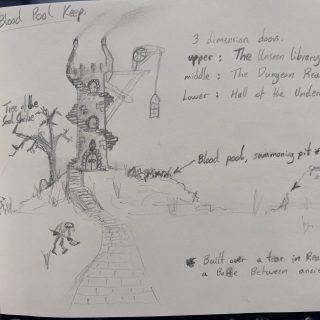 Blood Pool Keep.
3 dimension doors.
upper : The Unseen library
middle : The Dungeon Rea
Lower : Hall of the Under
Tree of the
Blood pool, summoning pit *
* Built over a tear in Rea
a Battle Between ancie